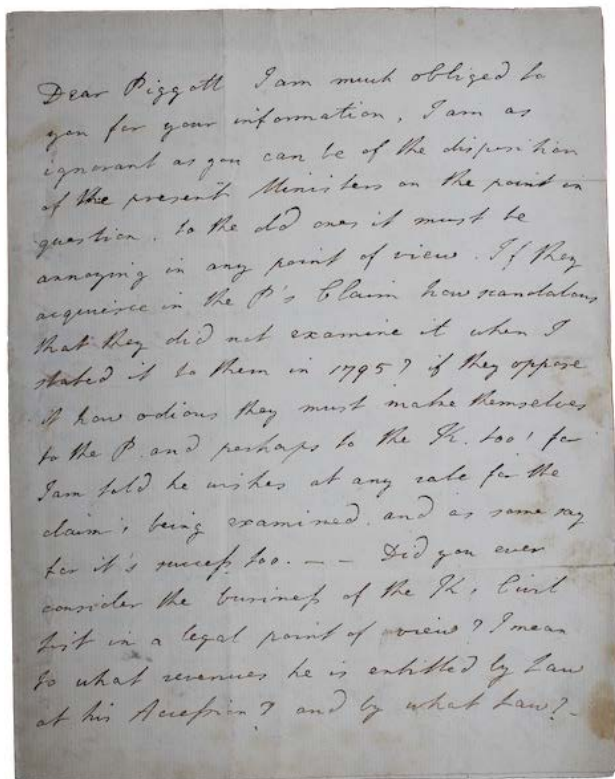 Dear Piggott I am much obliged to
you for your information, I am as
ignorant as you can be of the disposition
of the present Ministers on the point in
question. to the old ones it must be
annoying in any point of view. If they
acquiesce in the P's Claim how scandalous
that they did not examine it when I
stated it to them in 1795? if they oppose
it how odious they must make themselves
to the P. and perhaps to the K. too! for
I am told he wishes at any rate for the
claim's being examined. and as some say
for it's success too. — — Did you ever
consider the business of the K's Civil
List in a legal point of view? I mean
to what revenues he is entitled by Law
at his Accession? and by what Law? -